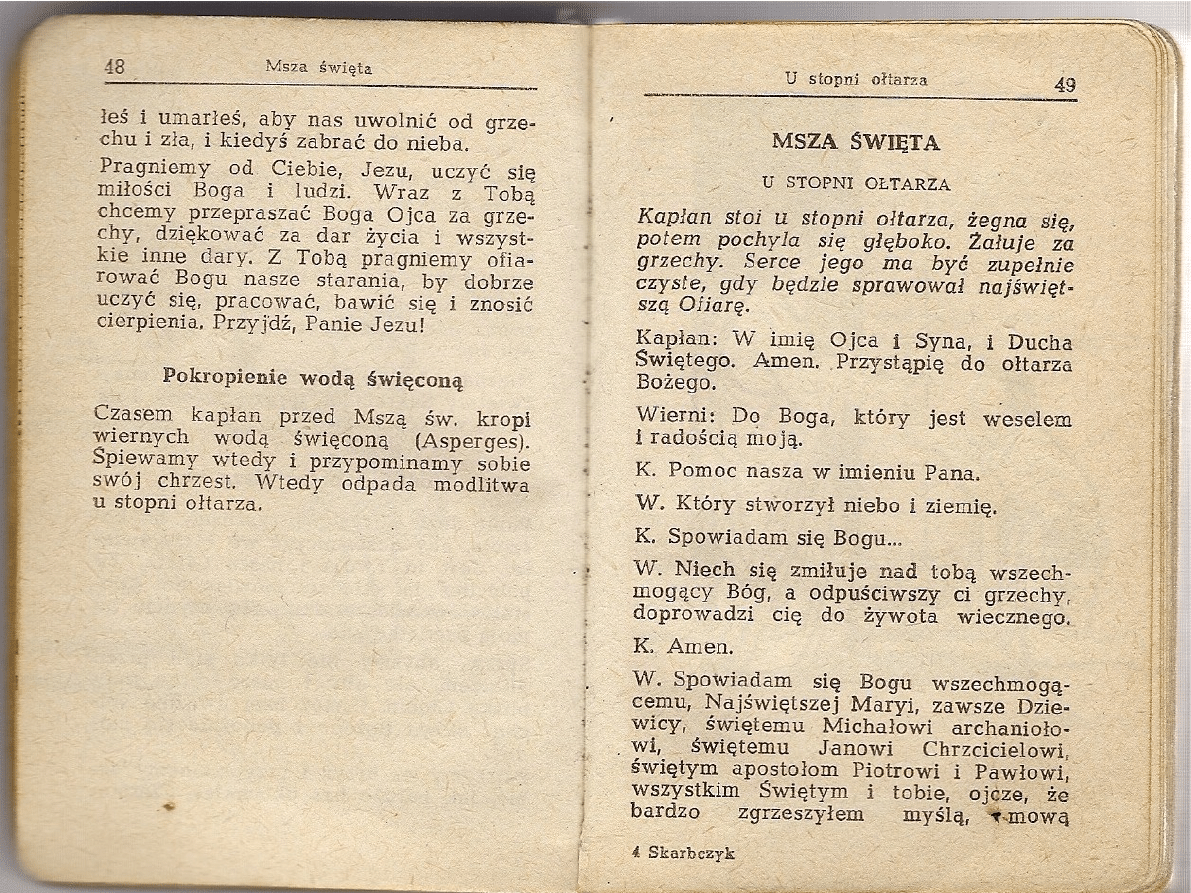 48 Msza święta
łeś i umarłeś, aby nas uwolnić od grze-
chu i zła, i kiedyś zabrać do nieba.
Pragniemy od Ciebie, Jezu, uczyć się
miłości Boga i ludzi. Wraz z Tobą
chcemy przepraszać Boga Ojca za grze-
chy, dziękować za dar życia i wszyst-
kie inne dary. Z Tobą pragniemy ofia-
rować Bogu nasze starania, by dobrze
uczyć się, pracować, bawić się i znosić
cierpienia. Przyjdź, Panie Jezu!
Pokropienie wodą święconą
Czasem kapłan przed Mszą św. kropi
wiernych wodą święconą (Asperges).
Śpiewamy wtedy i przypominamy sobie
swój chrzest. Wtedy odpada modlitwa
u stopni ołtarza.
U stopni ołtarza 49
MSZA ŚWIĘTA
U STOPNI OŁTARZA
Kapłan stoi u stopni ołtarza, żegna się,
potem pochyla się głęboko. Żałuje za
grzechy. Serce jego ma być zupełnie
czyste, gdy będzie sprawował najświęt-
szą Ofiarę.
Kapłan: W imię Ojca i Syna, i Ducha
Świętego. Amen. Przystąpię do ołtarza
Bożego.
Wierni: Do Boga, który jest weselem
i radością moją.
K. Pomoc nasza w imieniu Pana.
W. Który stworzył niebo i ziemię.
K. Spowiadam się Bogu...
W. Niech się zmiłuje nad tobą wszech-
mogący Bóg, a odpuściwszy ci grzechy,
doprowadzi cię do żywota wiecznego.
K. Amen.
W. Spowiadam się Bogu wszechmogą-
cemu, Najświętszej Maryi, zawsze Dzie-
wicy, świętemu Michałowi archanioło-
wi, świętemu Janowi Chrzcicielowi,
świętym apostołom Piotrowi i Pawłowi,
wszystkim Świętym i tobie, ojcze, że
bardzo zgrzeszyłem myślą, mową
4 Skarbczyk